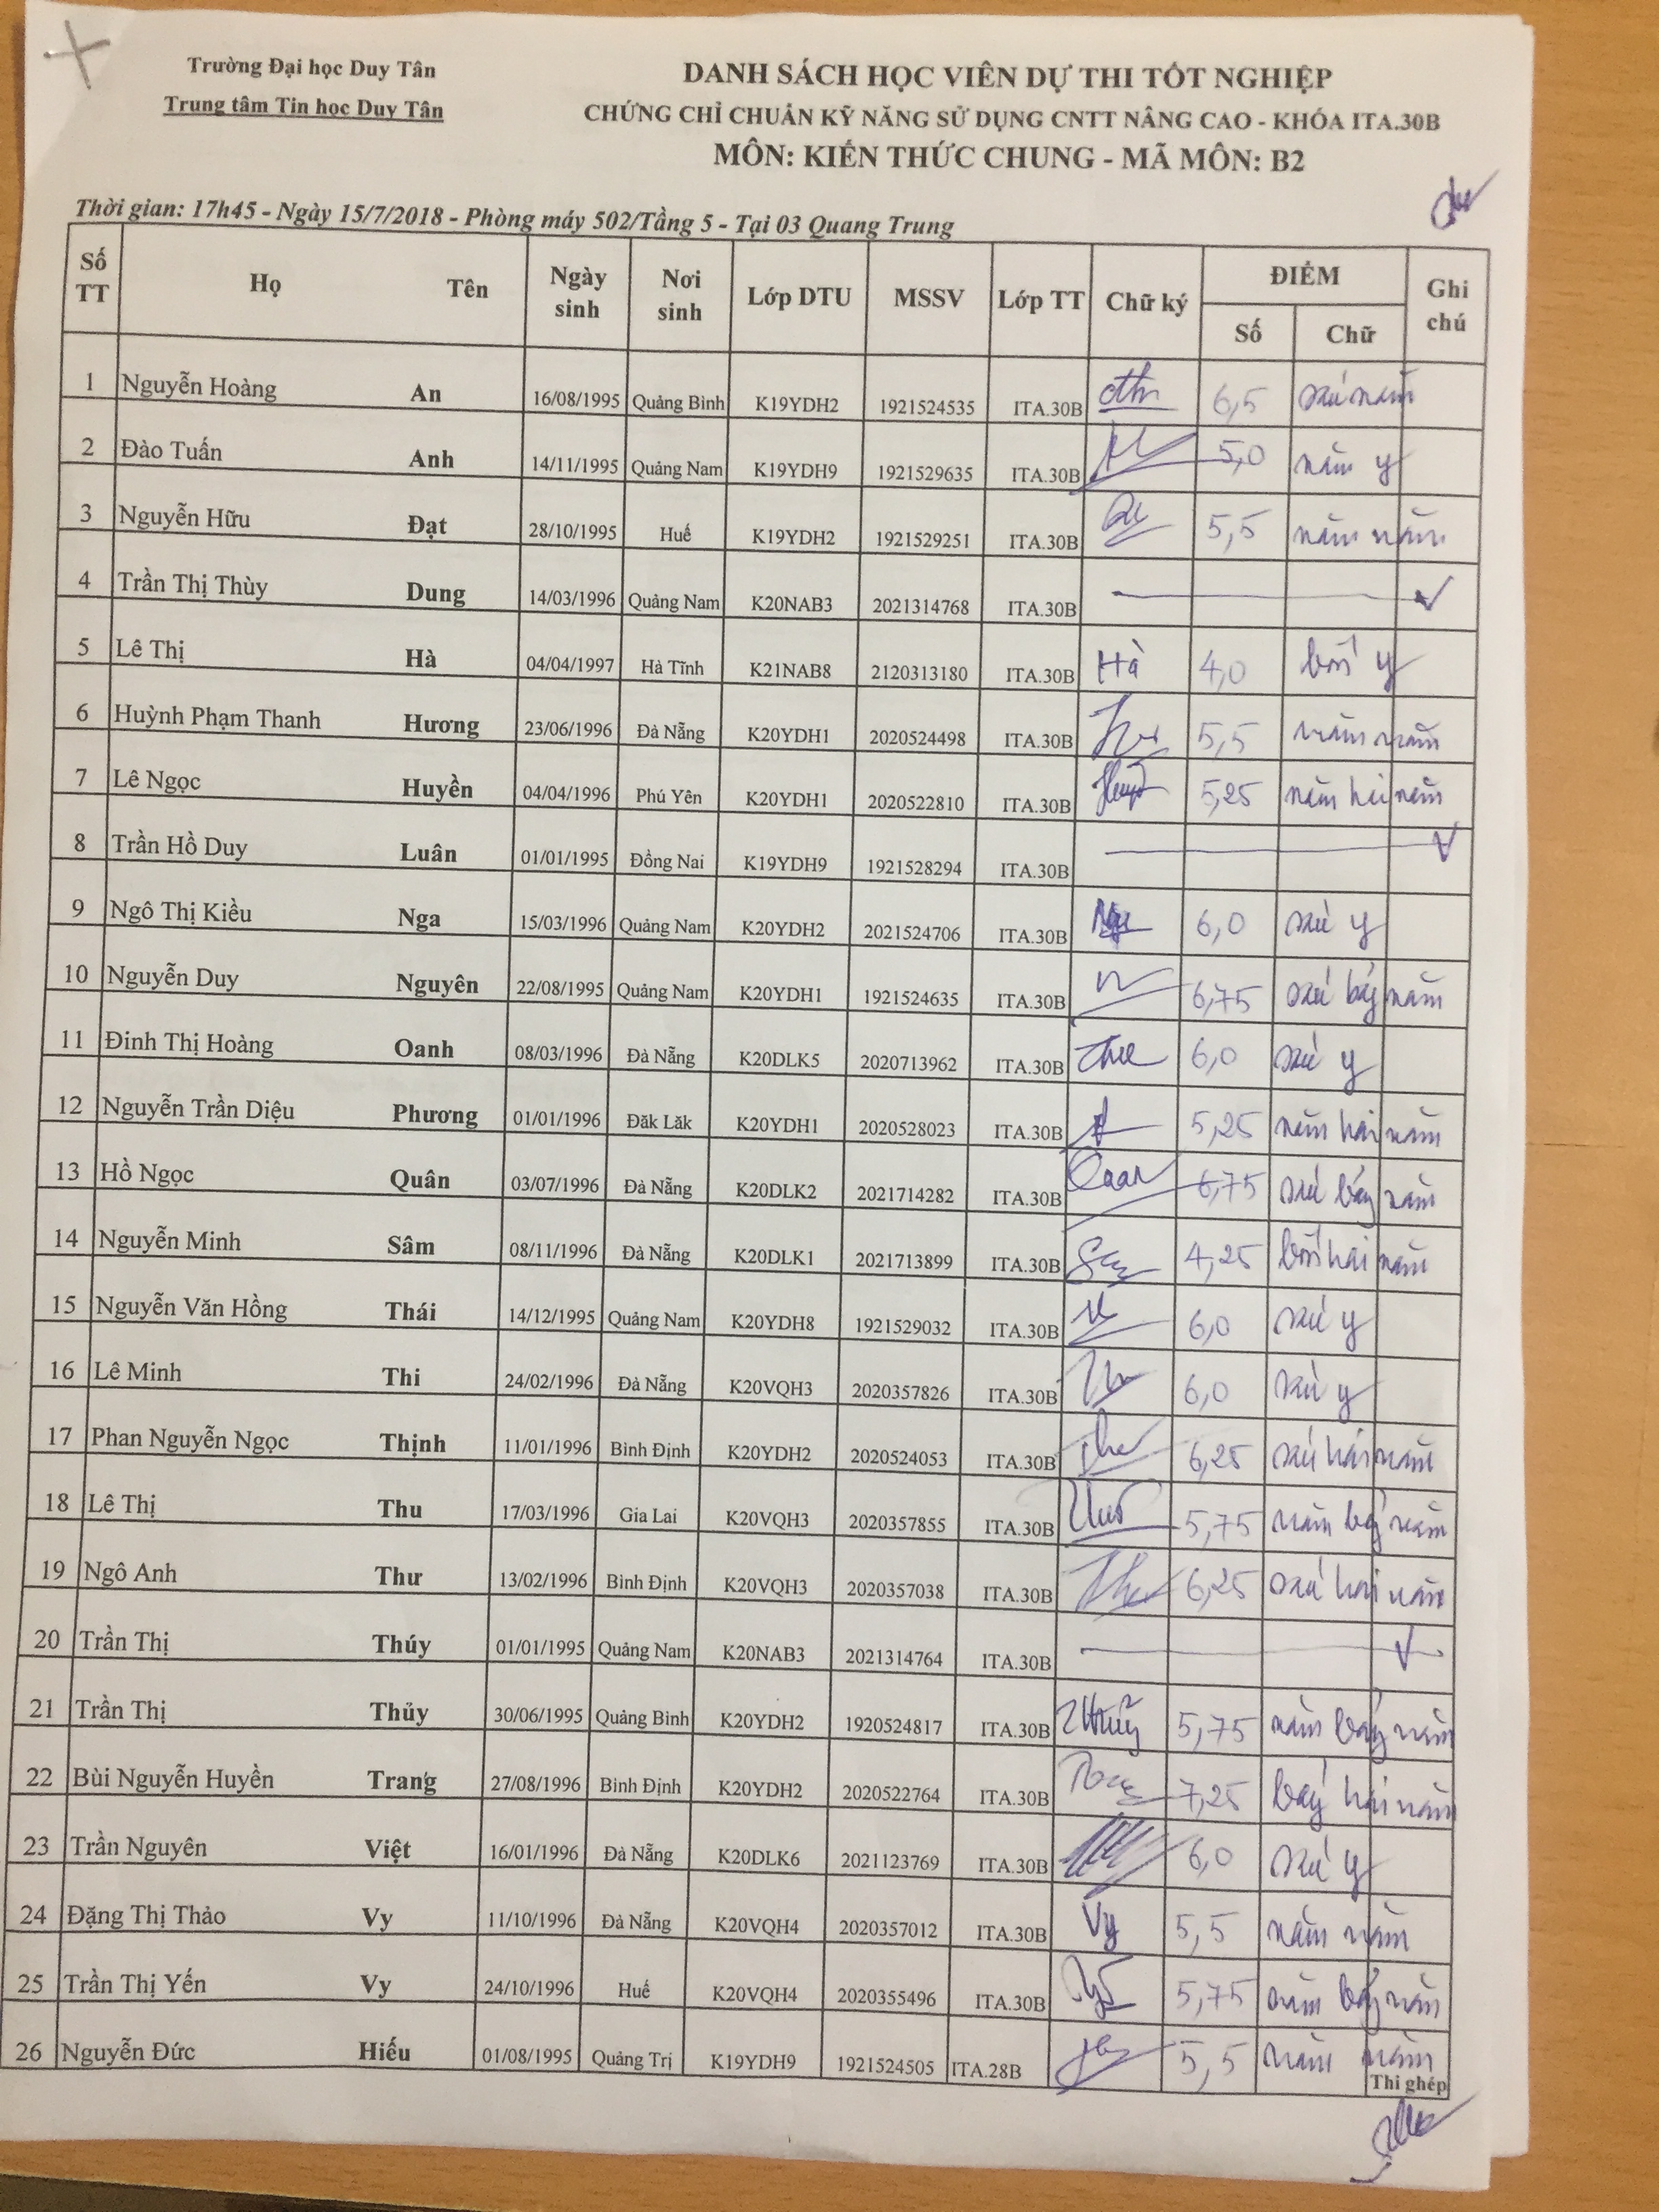 Trường Đại học Duy Tân
Trung tâm Tin học Duy Tân
DANH SÁCH HỌC VIÊN DỰ THI TỐT NGHIỆP
CHỨNG CHỈ CHUẨN KỸ NĂNG SỬ DỤNG CNTT NÂNG CAO - KHÓA ITA.30B
MÔN: KIẾN THỨC CHUNG - MÃ MÔN: B2
Thời gian: 17h45 - Ngày 15/7/2018 - Phòng máy 502/Tầng 5 - Tại 03 Quang Trung
Số TT Họ Tên Ngày sinh Nơi sinh Lớp DTU MSSV Lớp TT Chữ ký ĐIỂM Ghi chú
Số Chữ
1 Nguyễn Hoàng An 16/08/1995 Quảng Bình K19YDH2 1921524535 ITA.30B 6,5 sáu năm
2 Đào Tuấn Anh 14/11/1995 Quảng Nam K19YDH9 1921529635 ITA.30B 5,0 năm y
3 Nguyễn Hữu Đạt 28/10/1995 Huế K19YDH2 1921529251 ITA.30B 5,5 năm năm
4 Trần Thị Thùy Dung 14/03/1996 Quảng Nam K20NAB3 2021314768 ITA.30B
5 Lê Thị Hà 04/04/1997 Hà Tĩnh K21NAB8 2120313180 ITA.30B Hà 4,0 bốn y
6 Huỳnh Phạm Thanh Hương 23/06/1996 Đà Nẵng K20YDH1 2020524498 ITA.30B 5,5 năm năm
7 Lê Ngọc Huyền 04/04/1996 Phú Yên K20YDH1 2020522810 ITA.30B 5,25 năm hai năm
8 Trần Hồ Duy Luân 01/01/1995 Đồng Nai K19YDH9 1921528294 ITA.30B
9 Ngô Thị Kiều Nga 15/03/1996 Quảng Nam K20YDH2 2021524706 ITA.30B 6,0 sáu y
10 Nguyễn Duy Nguyên 22/08/1995 Quảng Nam K20YDH1 1921524635 ITA.30B 6,75 sáu bảy năm
11 Đinh Thị Hoàng Oanh 08/03/1996 Đà Nẵng K20DLK5 2020713962 ITA.30B 6,0 sáu y
12 Nguyễn Trần Diệu Phương 01/01/1996 Đăk Lăk K20YDH1 2020528023 ITA.30B 5,25 năm hai năm
13 Hồ Ngọc Quân 03/07/1996 Đà Nẵng K20DLK2 2021714282 ITA.30B 6,75 sáu bảy năm
14 Nguyễn Minh Sâm 08/11/1996 Đà Nẵng K20DLK1 2021713899 ITA.30B 4,25 bốn hai năm
15 Nguyễn Văn Hồng Thái 14/12/1995 Quảng Nam K20YDH8 1921529032 ITA.30B 6,0 sáu y
16 Lê Minh Thi 24/02/1996 Đà Nẵng K20VQH3 2020357826 ITA.30B 6,0 sáu y
17 Phan Nguyễn Ngọc Thịnh 11/01/1996 Bình Định K20YDH2 2020524053 ITA.30B 6,25 sáu hai năm
18 Lê Thị Thu 17/03/1996 Gia Lai K20VQH3 2020357855 ITA.30B 5,75 năm bảy năm
19 Ngô Anh Thư 13/02/1996 Bình Định K20VQH3 2020357038 ITA.30B 6,25 sáu hai năm
20 Trần Thị Thúy 01/01/1995 Quảng Nam K20NAB3 2021314764 ITA.30B
21 Trần Thị Thủy 30/06/1995 Quảng Bình K20YDH2 1920524817 ITA.30B 5,75 năm bảy năm
22 Bùi Nguyễn Huyền Trang 27/08/1996 Bình Định K20YDH2 2020522764 ITA.30B 7,25 bảy hai năm
23 Trần Nguyên Việt 16/01/1996 Đà Nẵng K20DLK6 2021123769 ITA.30B 6,0 sáu y
24 Đặng Thị Thảo Vy 11/10/1996 Đà Nẵng K20VQH4 2020357012 ITA.30B Vy 5,5 năm năm
25 Trần Thị Yến Vy 24/10/1996 Huế K20VQH4 2020355496 ITA.30B 5,75 năm bảy năm
26 Nguyễn Đức Hiếu 01/08/1995 Quảng Trị K19YDH9 1921524505 ITA.28B 5,5 năm năm
Thi ghép